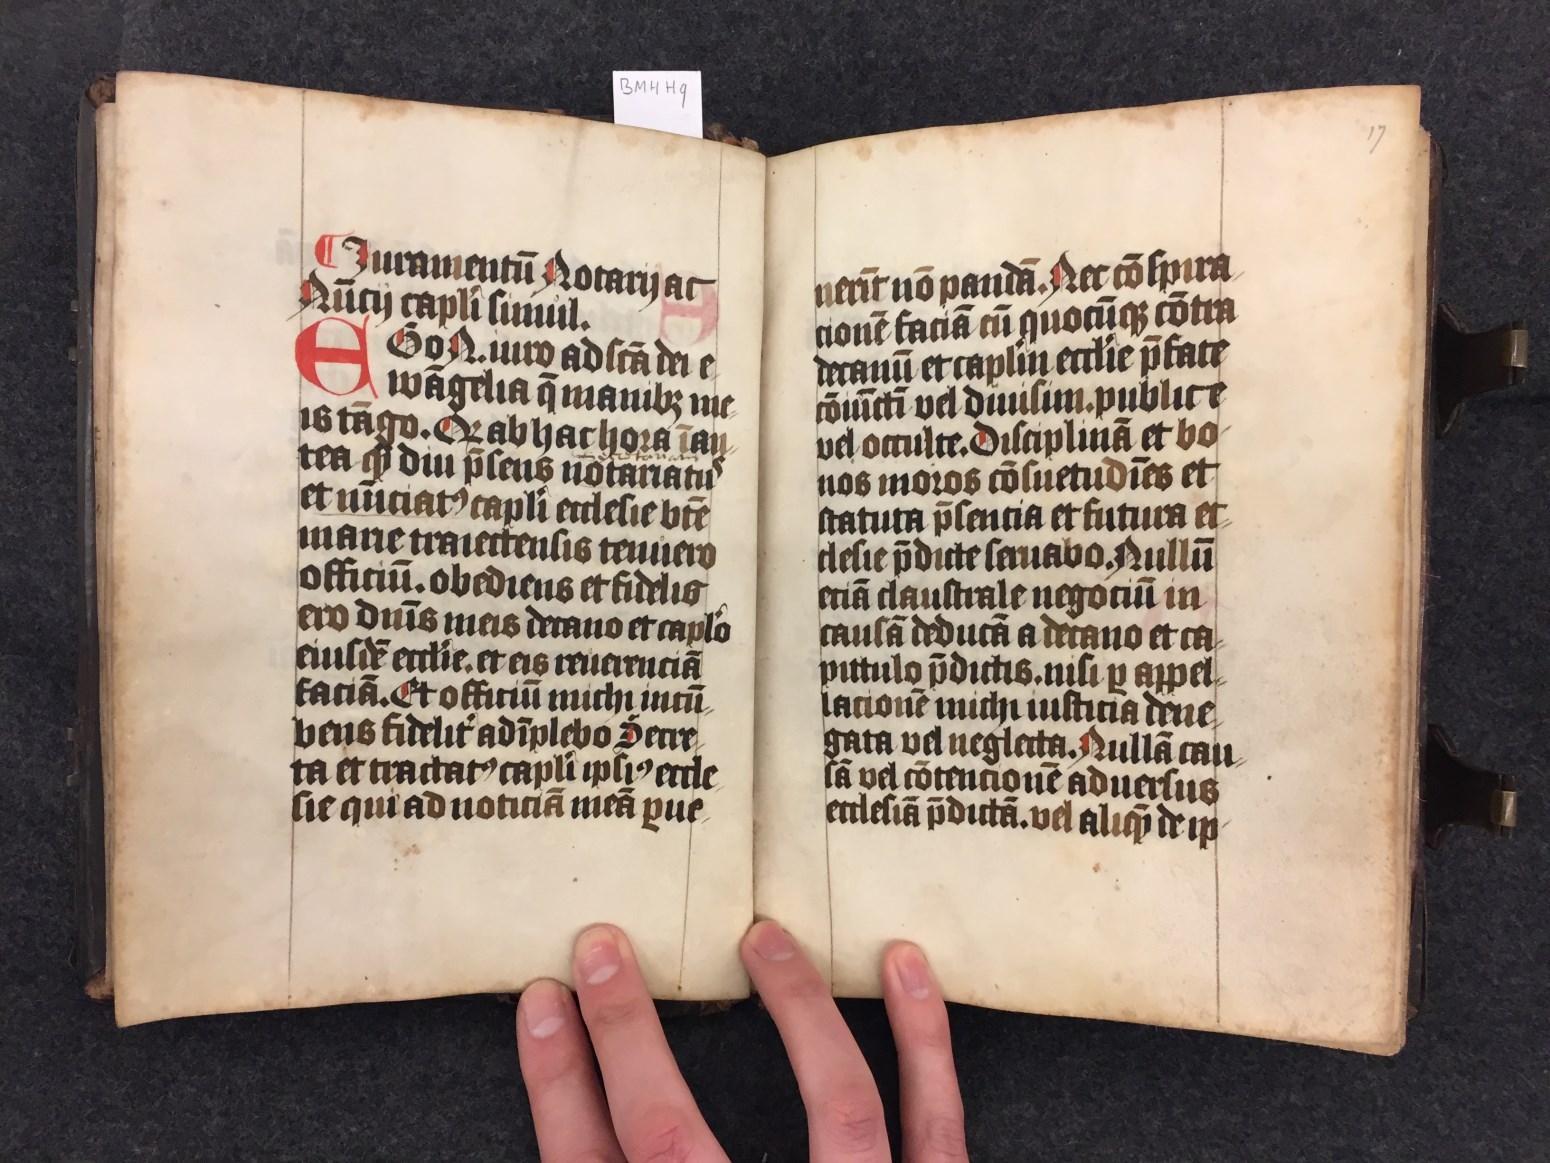 BMH H9
Juramentū Notarij ac
Nūcij capl̄i simul.
EGo N. iuro ad sc̄ā dei e
wāgelia q̄ manibꝫ me
is tāgo. Qꝛ ab hac hora ī an
tea qͫdiu p̄sens notariatus
et nūciatꝰ capl̄i ecclesie bt̄e
marie traiectensis tenuero
officiū. obediens et fidelis
ero dnīs meis decano et capl̄o
eiusdē eccl̄ie. et eis reuerenciā
faciā. Et officiū michi incū
bens fidelit̉ adīplebo Secre
ta et tractatꝰ capl̄i ipsiꝰ eccle
sie qui ad noticiā meā ꝑue
17
nerīt nō pandā. Nec cōspira
cionē faciā cū quocūqꝫ cōtra
decanū et capl̄m eccl̄ie p̄fate
cōiūcti vel diuisim. publice
vel occulte. Disciplinā et bo
nos moros cōsuetudīes et
statuta p̄sencia et futura ec
clesie p̄dicte seruabo. Nullū
eciā claustrale negociū in
causā deducā a decano et ca
pittulo p̄dictis. nisi ꝑ appel
lacionē michi iusticia dene
gata vel neglecta. Nullā cau
sā vel cōtencionē aduersus
ecclesiā p̄dictā. vel aliqͫ de ip